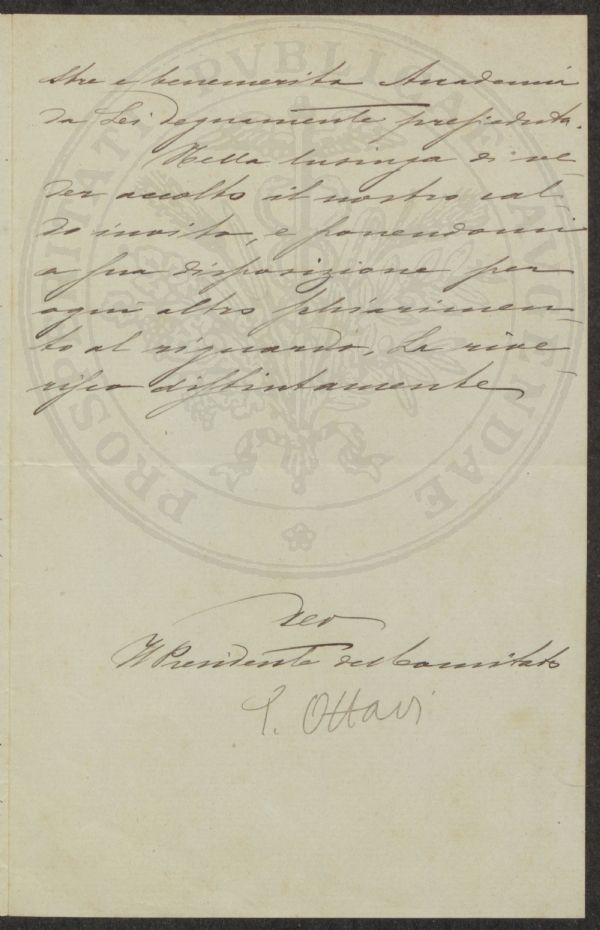 stre e benemerita Accademia
da Lei degnamente presieduta.
Nella lusinga di ve-
der accolto il nostro cal-
do invito, e ponendomi
a sua disposizione per
ogni altro schiarimen-
to al riguardo, La rive-
risco distintamente
Il Presidente del Comitato
Ottavi
PROSPERITATI PVBLICAE AVGENDAE